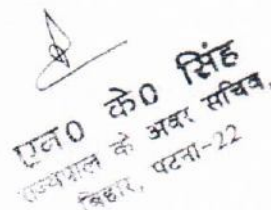 एन0 के0 सिंह
राज्यपाल के अवर सचिव,
बिहार, पटना-22